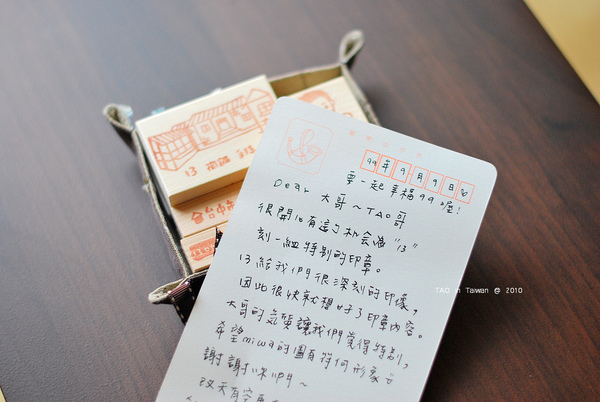 99年9月9日
要一起幸福99喔!
Dear 大哥~TAO哥
很開心有這個機會為"13"
刻一組特別的印章。
13給我們很深刻的印象,
因此很快就想好了印章內容。
大哥的氣質讓我們覺得特別,
希望miwa的圖有符何形象
謝謝你們~
改天有空
13
台中
TAO in Taiwan @ 2010